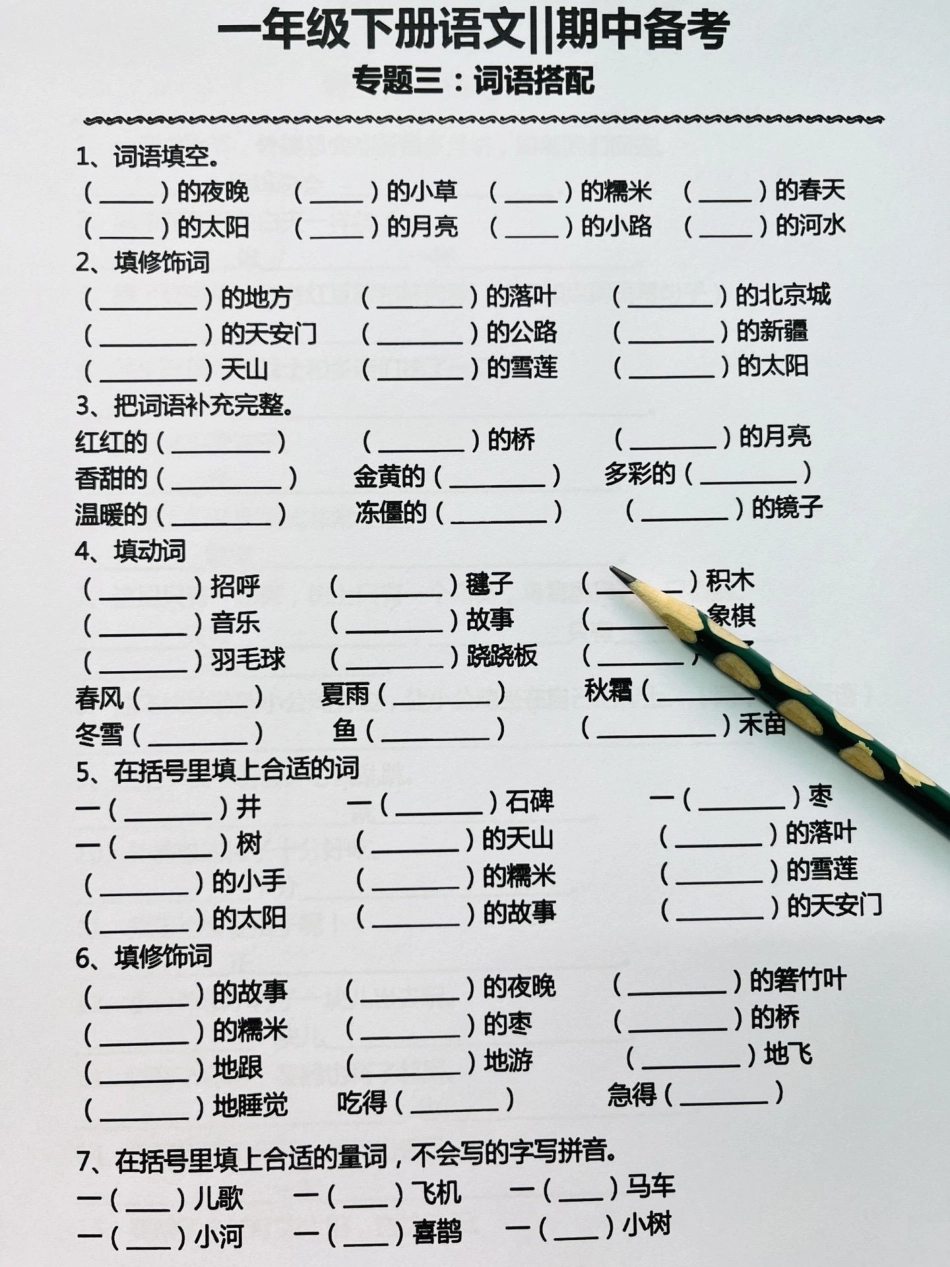 一年级下册语文||期中备考
专题三：词语搭配
1、词语填空。
（____）的夜晚 （____）的小草 （____）的糯米 （____）的春天
（____）的太阳 （____）的月亮 （____）的小路 （____）的河水
2、填修饰词
（________）的地方 （________）的落叶 （________）的北京城
（________）的天安门 （________）的公路 （________）的新疆
（________）天山 （________）的雪莲 （________）的太阳
3、把词语补充完整。
红红的（________） （________）的桥 （________）的月亮
香甜的（________） 金黄的（________） 多彩的（________）
温暖的（________） 冻僵的（________） （________）的镜子
4、填动词
（________）招呼 （________）毽子 （________）积木
（________）音乐 （________）故事 （________）象棋
（________）羽毛球 （________）跷跷板 （________）
春风（________） 夏雨（________） 秋霜（________
冬雪（________） 鱼（________） （________）禾苗
5、在括号里填上合适的词
一（________）井 一（________）石碑 一（________）枣
一（________）树 （________）的天山 （________）的落叶
（________）的小手 （________）的糯米 （________）的雪莲
（________）的太阳 （________）的故事 （________）的天安门
6、填修饰词
（________）的故事 （________）的夜晚 （________）的箬竹叶
（________）的糯米 （________）的枣 （________）的桥
（________）地跟 （________）地游 （________）地飞
（________）地睡觉 吃得（________） 急得（________）
7、在括号里填上合适的量词，不会写的字写拼音。
一（____）儿歌 一（____）飞机 一（____）马车
一（____）小河 一（____）喜鹊 一（____）小树